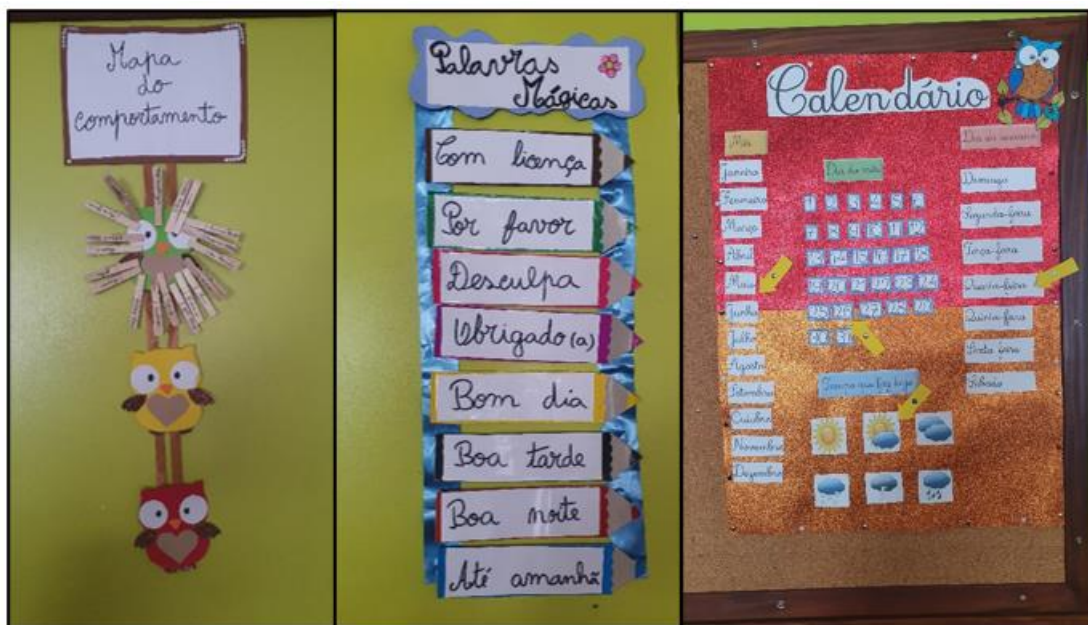 Mapa
do
comportamento
Palavras
Mágicas
Com licença
Por favor
Desculpa
Obrigado(a)
Bom dia
Boa tarde
Boa noite
Até amanhã
Calendário
Mês
Janeiro
Fevereiro
Março
Abril
Maio
Junho
Julho
Agosto
Setembro
Outubro
Novembro
Dezembro
Dia do mês
1 2 3 4 5 6
7 8 9 10 11 12
13 14 15 16 17 18
19 20 21 22 23 24
25 26 27 28 29
30 31
Dia da semana
Domingo
Segunda-feira
Terça-feira
Quarta-feira
Quinta-feira
Sexta-feira
Sábado
Tempo que faz hoje